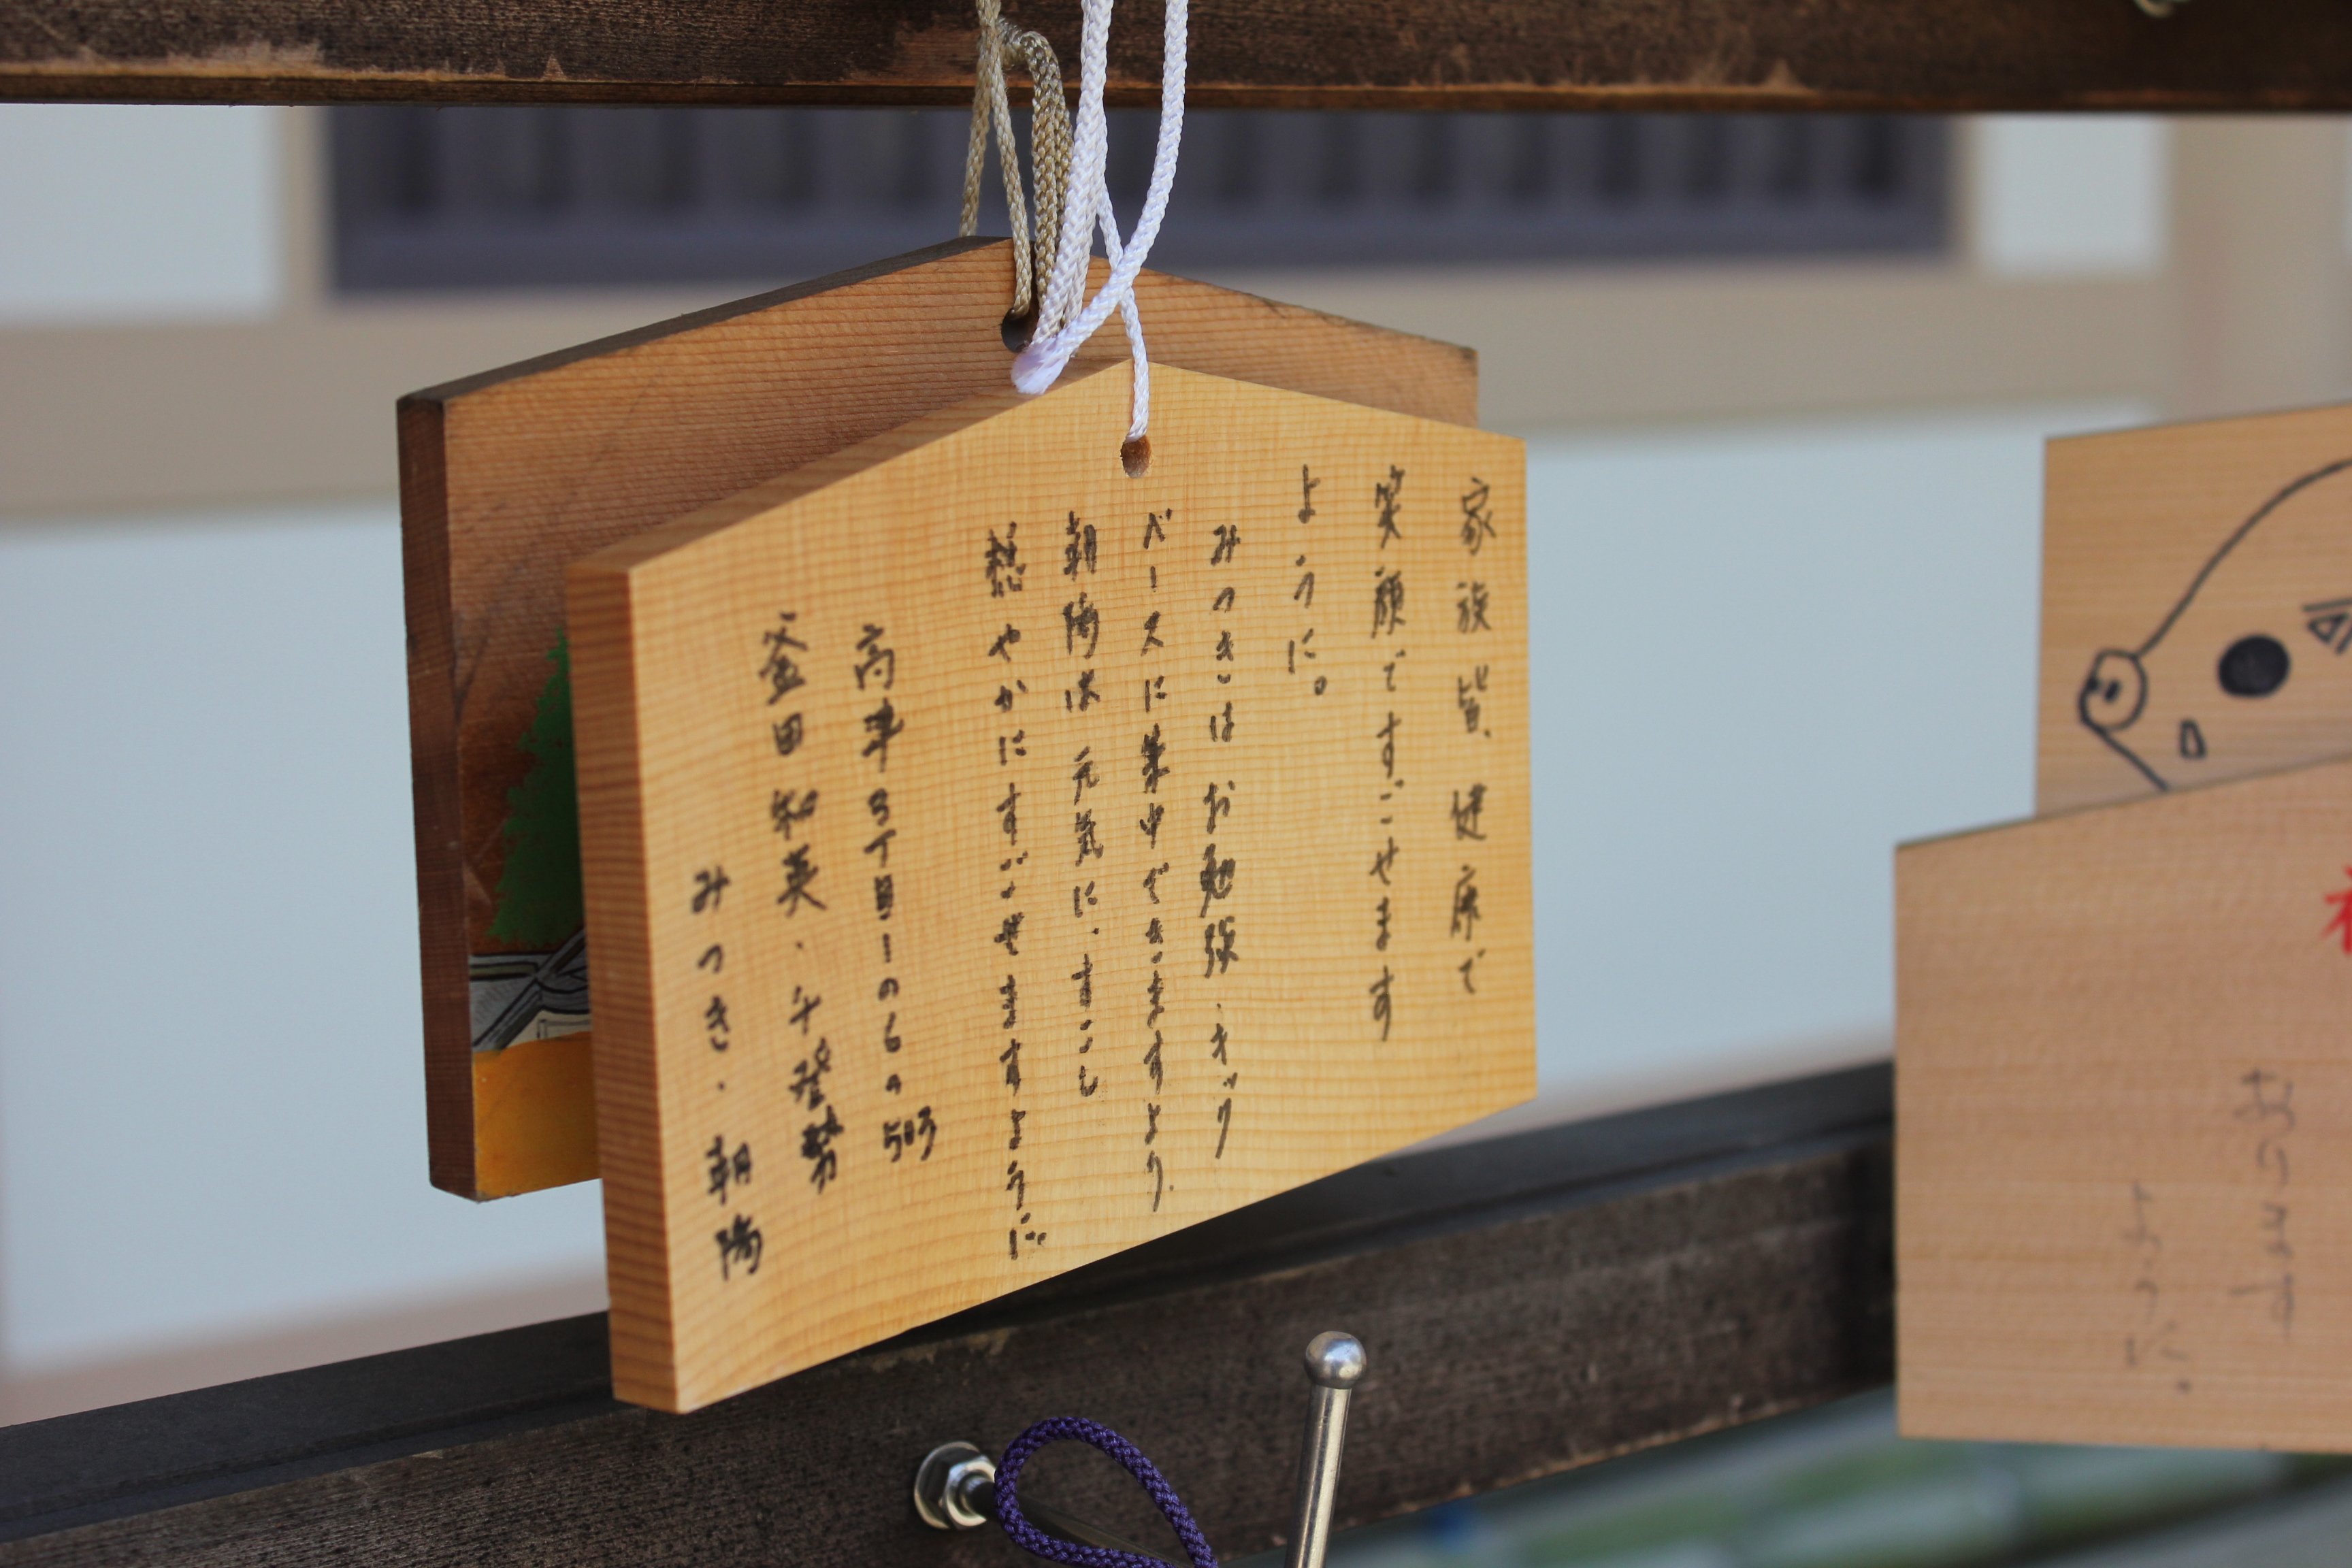 家族皆、健康で
笑顔ですごせます
ように。
みつきは お勉強、キック
ベースに集中できますよう、
朝陽は 元気に、すこし
穏やかにすごせますように…
高津3丁目1の6の503
釜田 和英・千登勢
みつき・朝陽